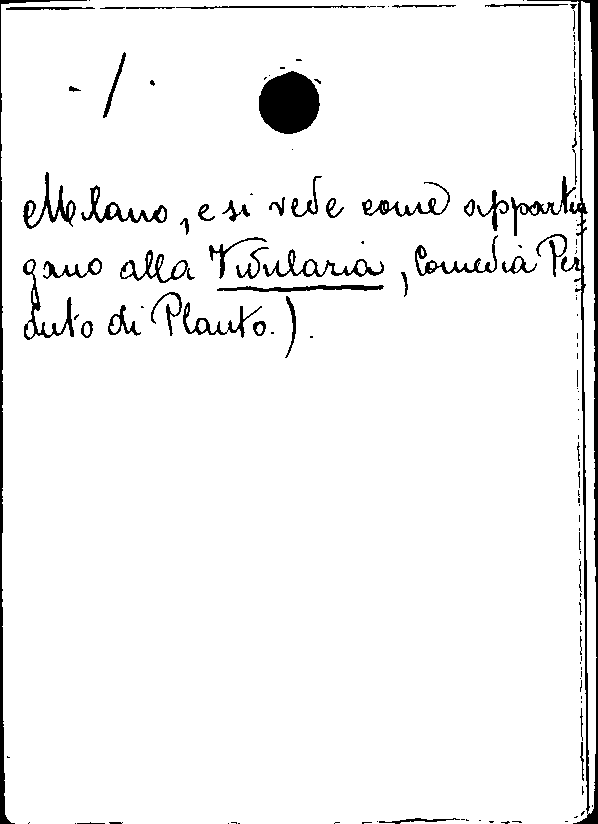 - / .
Milano, e si vede come apparten
gano alla Vidularia, Comedia Per
duto di Plauto.).